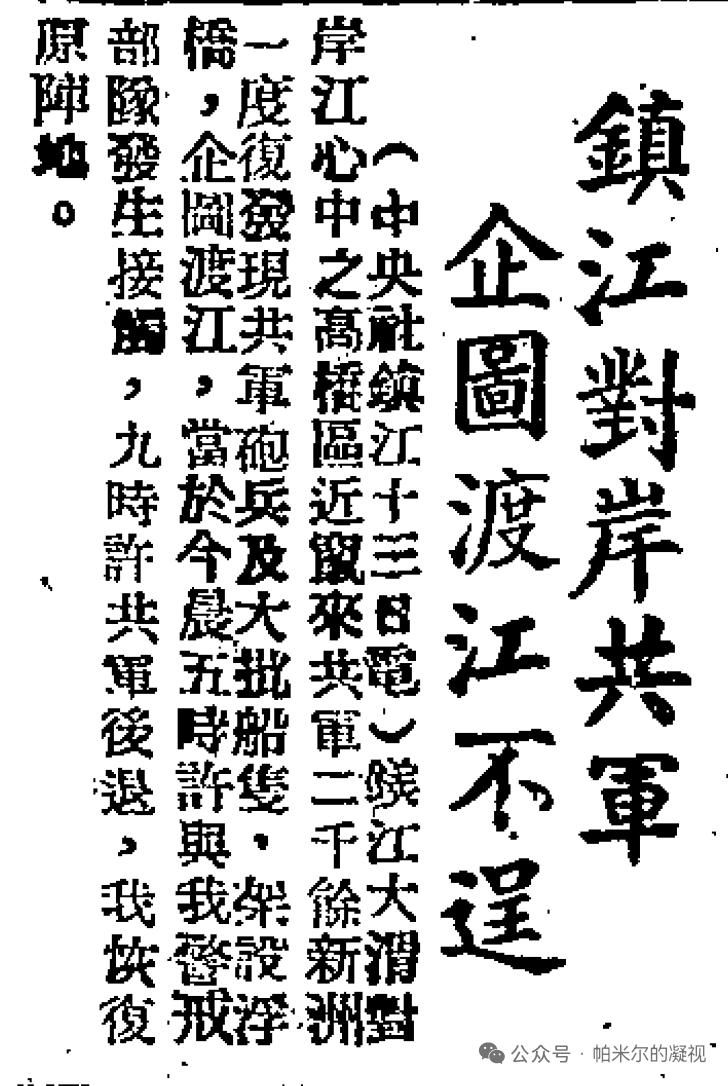 鎮江對岸共軍
企圖渡江不逞
（中央社鎮江十三日電）江大對
岸江心中之高橋區近竄來共軍二千餘新洲
一度復發現共軍砲兵及大批船隻．架設浮
橋，企圖渡江，當於今晨五時許與我警戒
部隊發生接觸，九時許共軍後退，我恢復
原陣地。
公众号 · 帕米尔的凝视